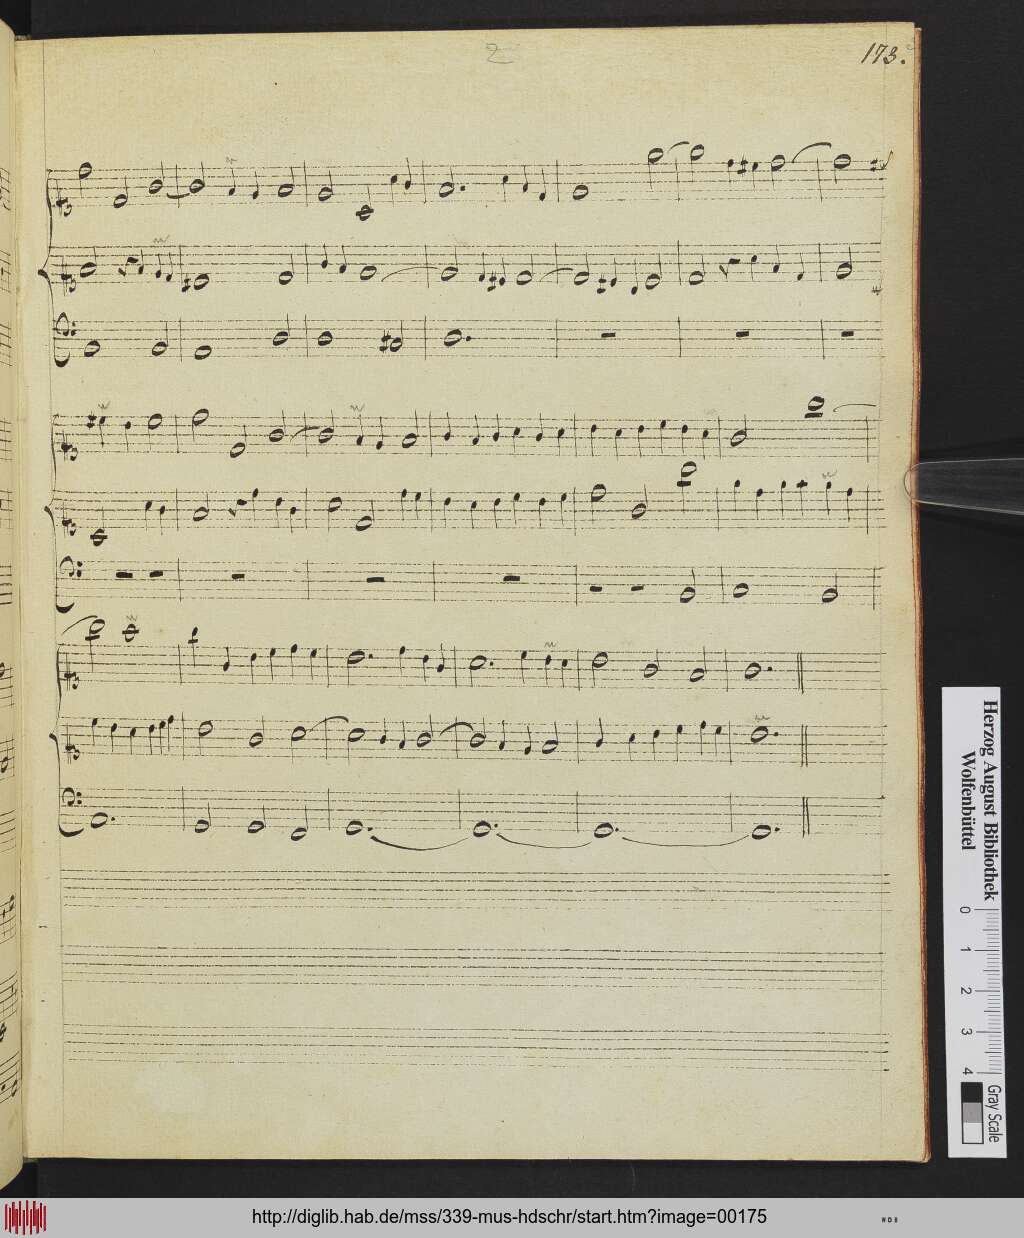 2
173.
Herzog August Bibliothek
Wolfenbüttel
0 1 2 3 4
Gray Scale
http://diglib.hab.de/mss/339-mus-hdschr/start.htm?image=00175